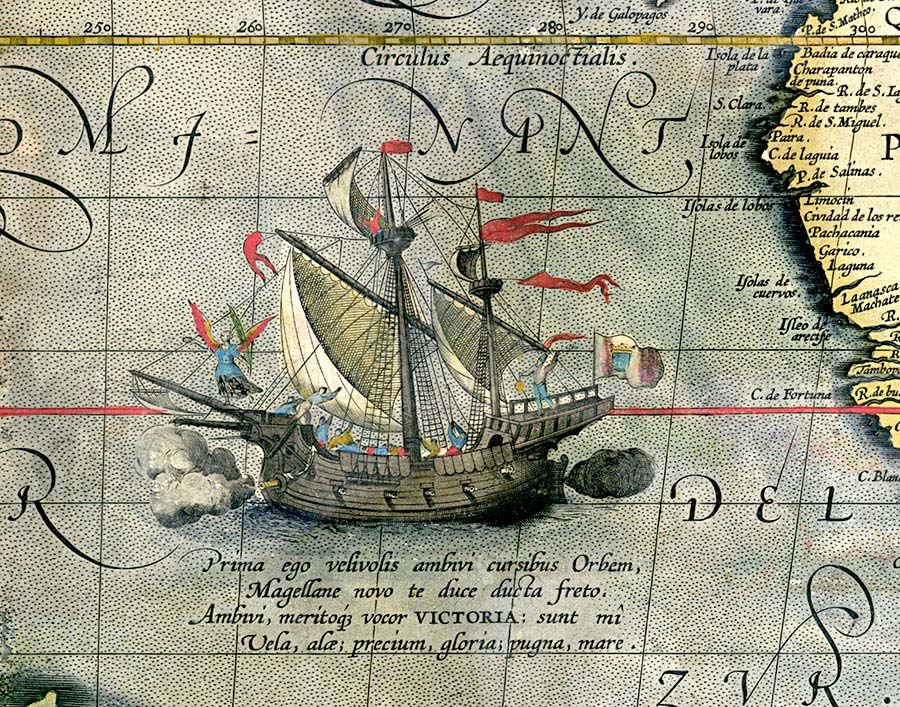 Y. de Galopagos
P. de S. Matheo.
250 260 270 280 290 300
Circulus Aequinoctialis.
Isola de la
plata.
Badia de caraque
Charapanton
de puna.
R. de S. Ia
S. Clara
R. de tambes
R. de S. Miguel.
MJ= NPNT,
Isola de
lobos
Paira.
C. de laguia
P
P. de Salinas.
Isolas de lobos
Limocin
Cividad de los re
Pachacania
Garico.
Laguna
Isolas de
cuervos.
Laanasca
Machate
R.
Isleo de
arecife
R
R
Tambopa
C. de Fortuna
R. de bu
C. Blan
R DEL
Prima ego velivolis ambivi cursibus Orbem,
Magellane novo te duce ducta freto.
Ambivi, meritoqꝫ vocor VICTORIA: sunt mî
Vela, alæ; precium, gloria; pugna, mare.
ZVR.